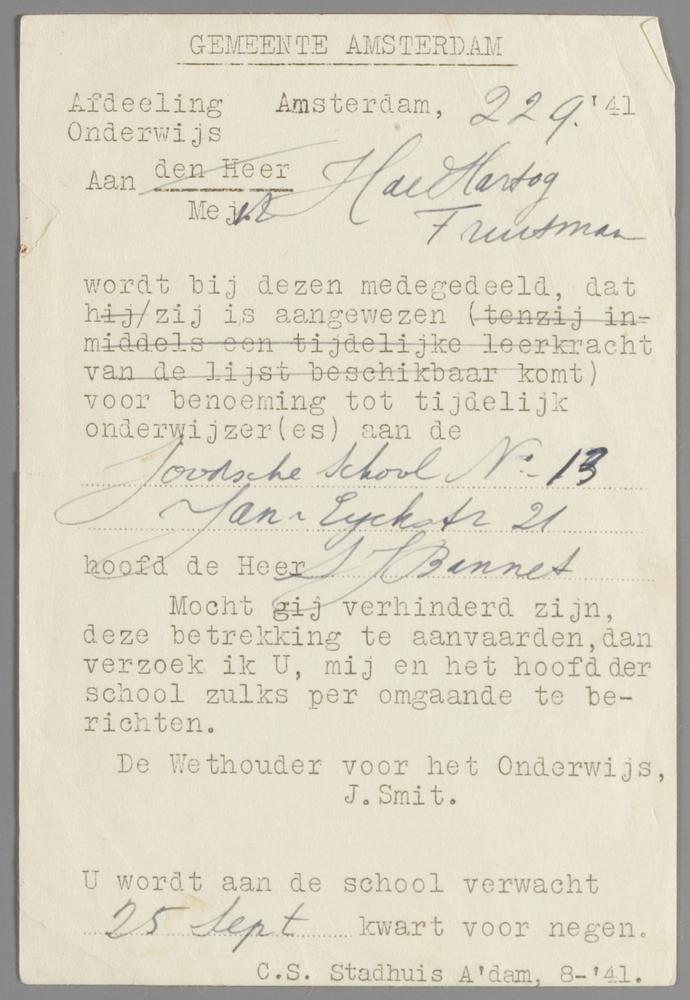 GEMEENTE AMSTERDAM
Afdeeling Amsterdam, 22 9.'41
Onderwijs
Aan den Heer H de Hartog
Mej
wordt bij dezen medegedeeld, dat
hij/zij is aangewezen (tenzij in-
middels een tijdelijke leerkracht
van de lijst beschikbaar komt)
voor benoeming tot tijdelijk
onderwijzer(es) aan de
Joodsche School No. 13
Jan v Eyckstr 21
hoofd de Heer S J Bannet
Mocht gij verhinderd zijn,
deze betrekking te aanvaarden,dan
verzoek ik U, mij en het hoofd der
school zulks per omgaande te be-
richten.
De Wethouder voor het Onderwijs,
J.Smit.
U wordt aan de school verwacht
25 Sept kwart voor negen.
C.S. Stadhuis A'dam, 8-'41.